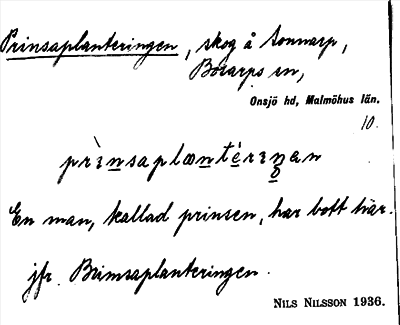 Prinsaplanteringen, skog å Sonnarp,
Bosarps sn,
Onsjö hd, Malmöhus län.
10.
prìnsaplæntériŋan
En man, kallad prinsen, har bott här.
jfr. Brimsaplanteringen.
NILS NILSSON 1936.